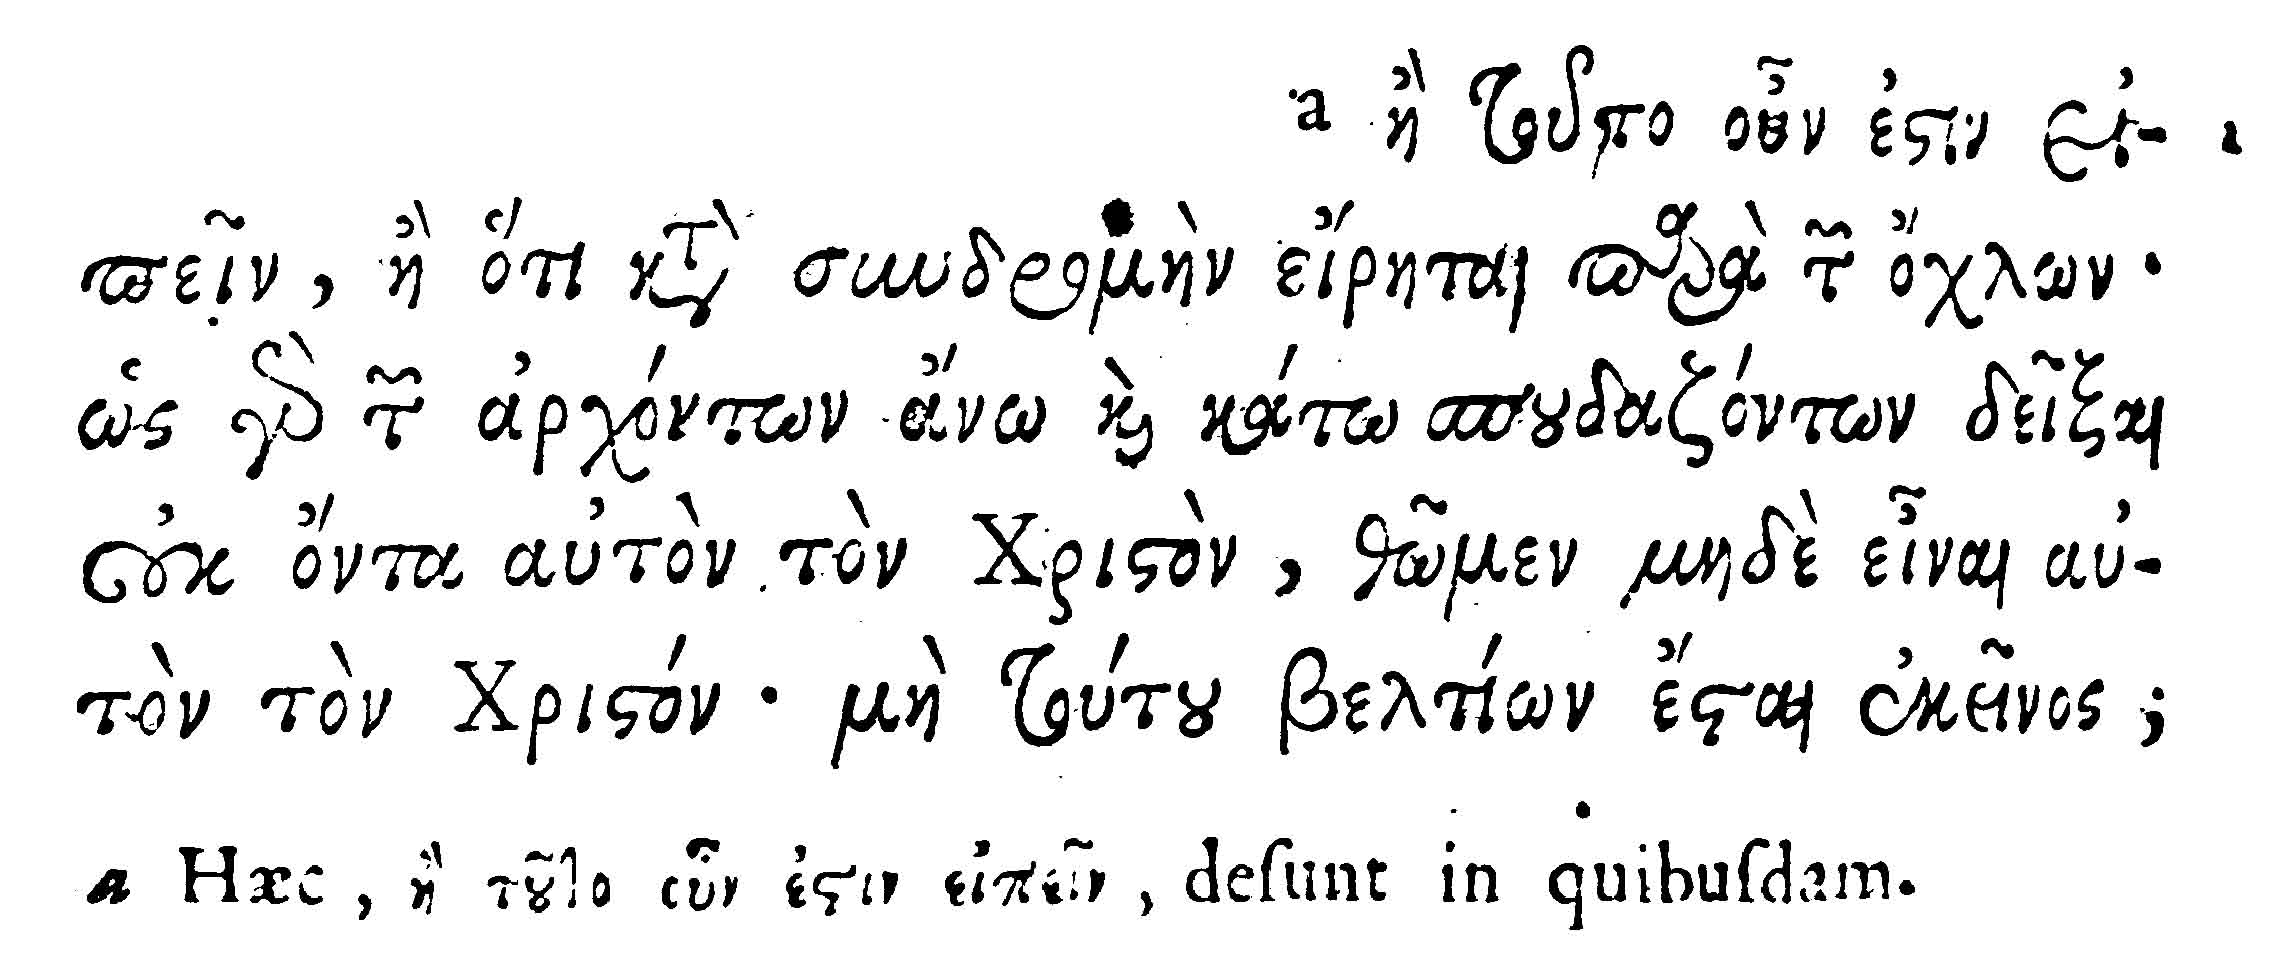 a ἢ τοῦτο οὖν ἐστιν εἰ-
πεῖν, ἢ ὅτι κατὰ συνδρομὴν εἴρηται παρὰ τῶν ὄχλων·
ὡς γὰρ τῶν ἀρχόντων ἄνω καὶ κάτω σπουδαζόντων δεῖξαι
οὐκ ὄντα αὐτὸν τὸν Χριστὸν, θῶμεν μηδὲ εἶναι αὐ-
τὸν τὸν Χριστόν· μὴ τούτου βελτίων ἔσται ἐκεῖνος;
a Hæc, ἢ τοῦτο οὖν ἐστιν εἰπεῖν, deſunt in quibuſdam.